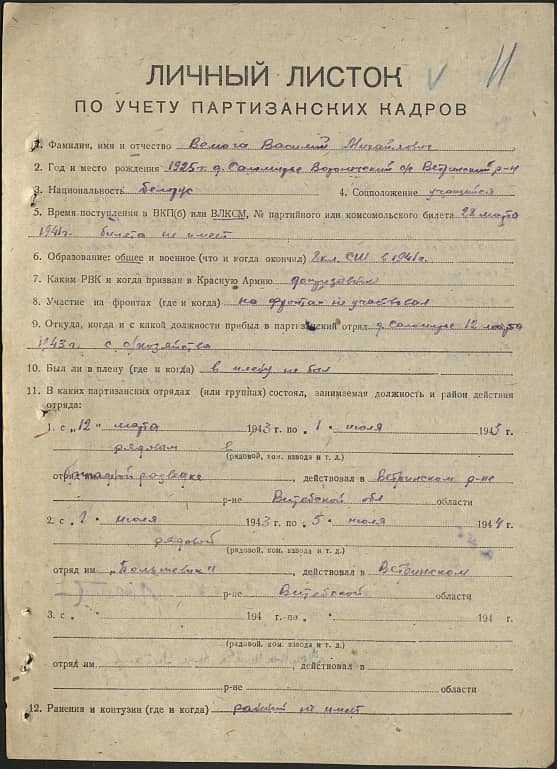 11
ЛИЧНЫЙ ЛИСТОК
ПО УЧЕТУ ПАРТИЗАНСКИХ КАДРОВ
1. Фамилия, имя и отчество Василий Михайлович
2. Год и место рождения 1925 г. д. Ветринский р-н
3. Национальность белорус 4. Соцположение учащийся
5. Время поступления в ВКП(б) или ВЛКСМ, № партийного или комсомольского билета 28 марта
1941г. билета не имеет
6. Образование: общее и военное (что и когда окончил) 8 кл. СШ в 1941г.
7. Каким РВК и когда призван в Красную Армию
8. Участие на фронтах (где и когда) на фронтах не участвовал
9. Откуда, когда и с какой должности прибыл в партизанский отряд д. 12 марта
1943г. с
10. Был ли в плену (где и когда) в плену не был
11. В каких партизанских отрядах (или группах) состоял, занимаемая должность и район действия
отряда:
1. с "12" марта 1943 г. по " 1 " июля 1943 г.
рядовым в
(рядовой, ком. взвода и т. д.)
отряд им разведке , действовал в Ветринском р-не
р-не Витебской обл области
2. с " 1 " июля 1943 г. по " 5 " июля 1944 г.
рядовой
(рядовой, ком. взвода и т. д.)
отряд им „Большевик" , действовал в Ветринском
р-не Витебской области
3. с " " 194 г. по " " 194 г.
(рядовой, ком. взвода и т. д.)
отряд им , действовал в
р-не области
12. Ранения и контузии (где и когда) ранений не имеет